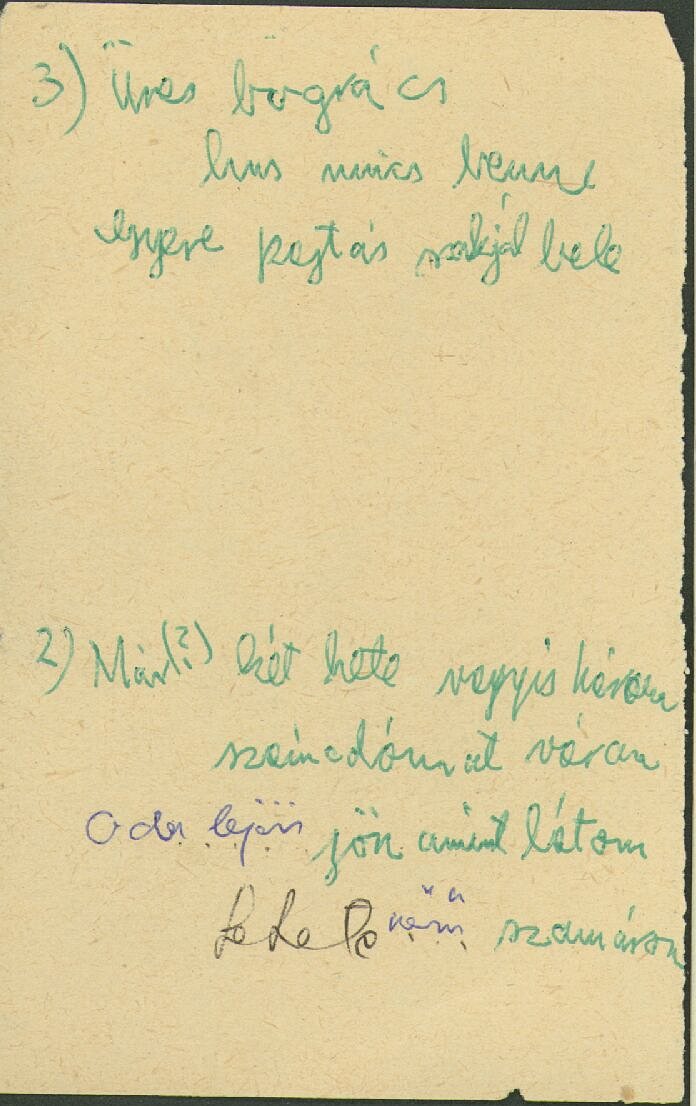 3) Üres bogrács
hus nincs benne
egyere pajtás szakjál bele
2) Már(?) két hete vagyis három
számadómat várom
Oda jön amint látom
szamáron